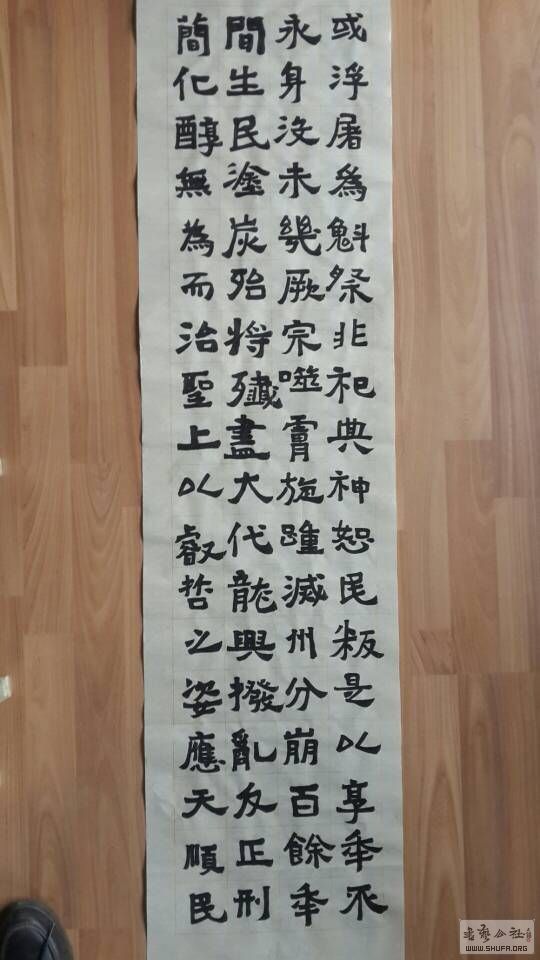 或浮屠為魁祭非祀典神恕民叛是以享年不
永身没未幾厥宗噬膚旋踵滅州分崩百餘年
間生民塗炭殆將殲盡大代龍興撥亂反正刑
簡化醇無為而治聖上以叡哲之姿應天順民
书艺公社
WWW.SHUFA.ORG